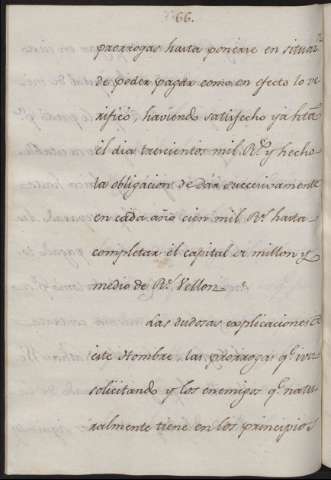 66.
prorrogas hasta ponerse en situaon.
de poder pagar como en efecto lo ve
rificó, haviendo satisfecho ya hta.
el dia trecientos mil Rs. y hecho
la obligacion de dar succesivamente
en cada año cien mil Rs. hasta
completar el capital de millon y
medio de Rs. Vellon.
Las dudosas explicaciones de
este Hombre las prorrogas qe.
solicitando y los enemigos qe. natu
ralmente tiene en los principios